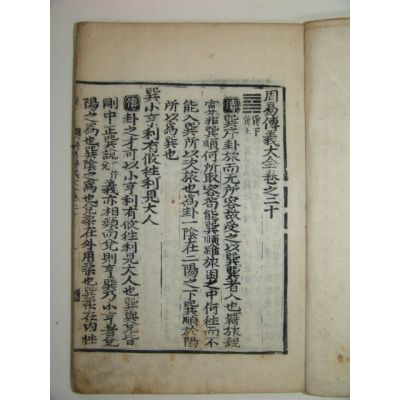 周易傳義大全卷之二十
䷸巽下巽上
傳巽序卦旅而无所容故受之以巽巽者入也羈旅親
寡非巽順何所取容苟能巽順雖旅困之中何徃而不
能入巽所以次旅也爲卦一陰在二陽之下巽順於陽
所以爲巽也
巽小亨利有攸徃利見大人
傳卦之才可以小亨利有攸徃利見大人也巽與兌皆
剛中正巽說義亦相類而兌則亨巽乃小亨者兌
陽之爲也巽陰之爲也兌柔在外用柔也巽柔在內性